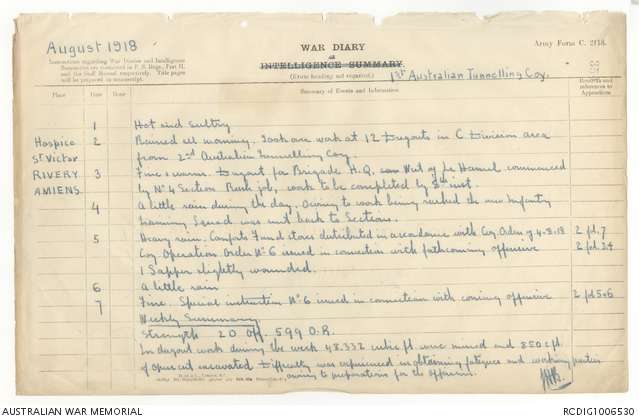 August 1918
WAR DIARY
or
INTELLIGENCE SUMMARY.
(Erase heading not required.)
Army Form C. 2118.
1st Australian Tunnelling Coy.
Instructions regarding War Diaries and Intelligence
Summaries are contained in F. S. Regs., Part II.
and the Staff Manual respectively. Title pages
will be prepared in manuscript.
Place
Date
Hour
Summary of Events and Information
Remarks and
references to
Appendices
Hospice
St Victor
RIVERY
AMIENS.
1 Hot and sultry
2 Rained all morning. Took over work at 12 Dugouts in C Division area
from 2nd Australian Tunnelling Coy.
3 Fine & warm. Dugout for Brigade H.Q. West of Le Hamel commenced
by No 4 Section. Rush job, work to be completed by 8th inst.
4 A little rain during the day. Owing to work being rushed the Infantry
training Squad was sent back to Sections.
5 Heavy rain. Comforts Fund stores distributed in accordance with Coy. Orders of 4.8.18 2 fd. 7
Coy Operation Order No 6 issued in connection with forthcoming offensive 2 fd 24
1 Sapper slightly wounded.
6 A little rain
7 Fine. Special instruction No 6 issued in connection with coming offensive 2 fd 5+6
Weekly Summary
Strength 20 Off. 599 O.R.
In dugout work during the week 48,332 cubic ft were mined and 850 c ft.
of open cut excavated. Difficulty was experienced in obtaining fatigues and working parties
owing to preparations for the offensive.
AUSTRALIAN WAR MEMORIAL
RCDIG1006530